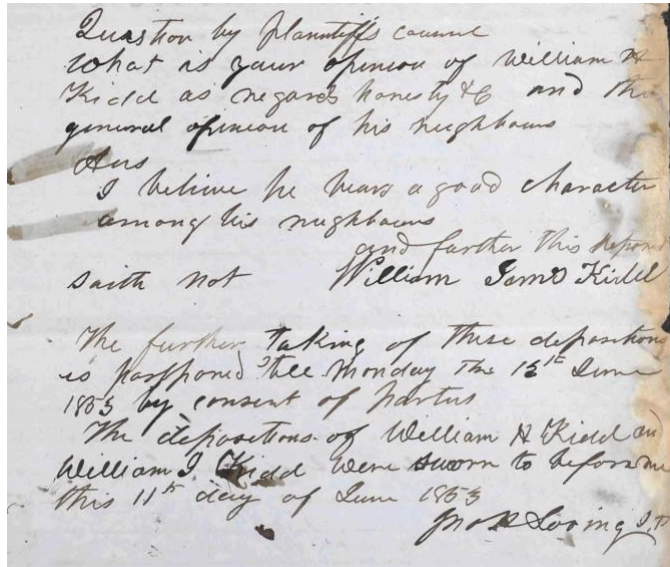 Question by plaintiffs counsel
What is your opinion of William H
Kidd as regards honesty &C and the
general opinion of his neighbours
Ans
I believe he bears a good character
among his neighbours
and further this depon
saith not William James Kidd
The further taking of these depositions
is postponed till Monday the 13th June
1853 by consent of parties
The depositions of William H Kidd and
William J Kidd were sworn to before me
this 11th day of June 1853
Jno Loving J.P